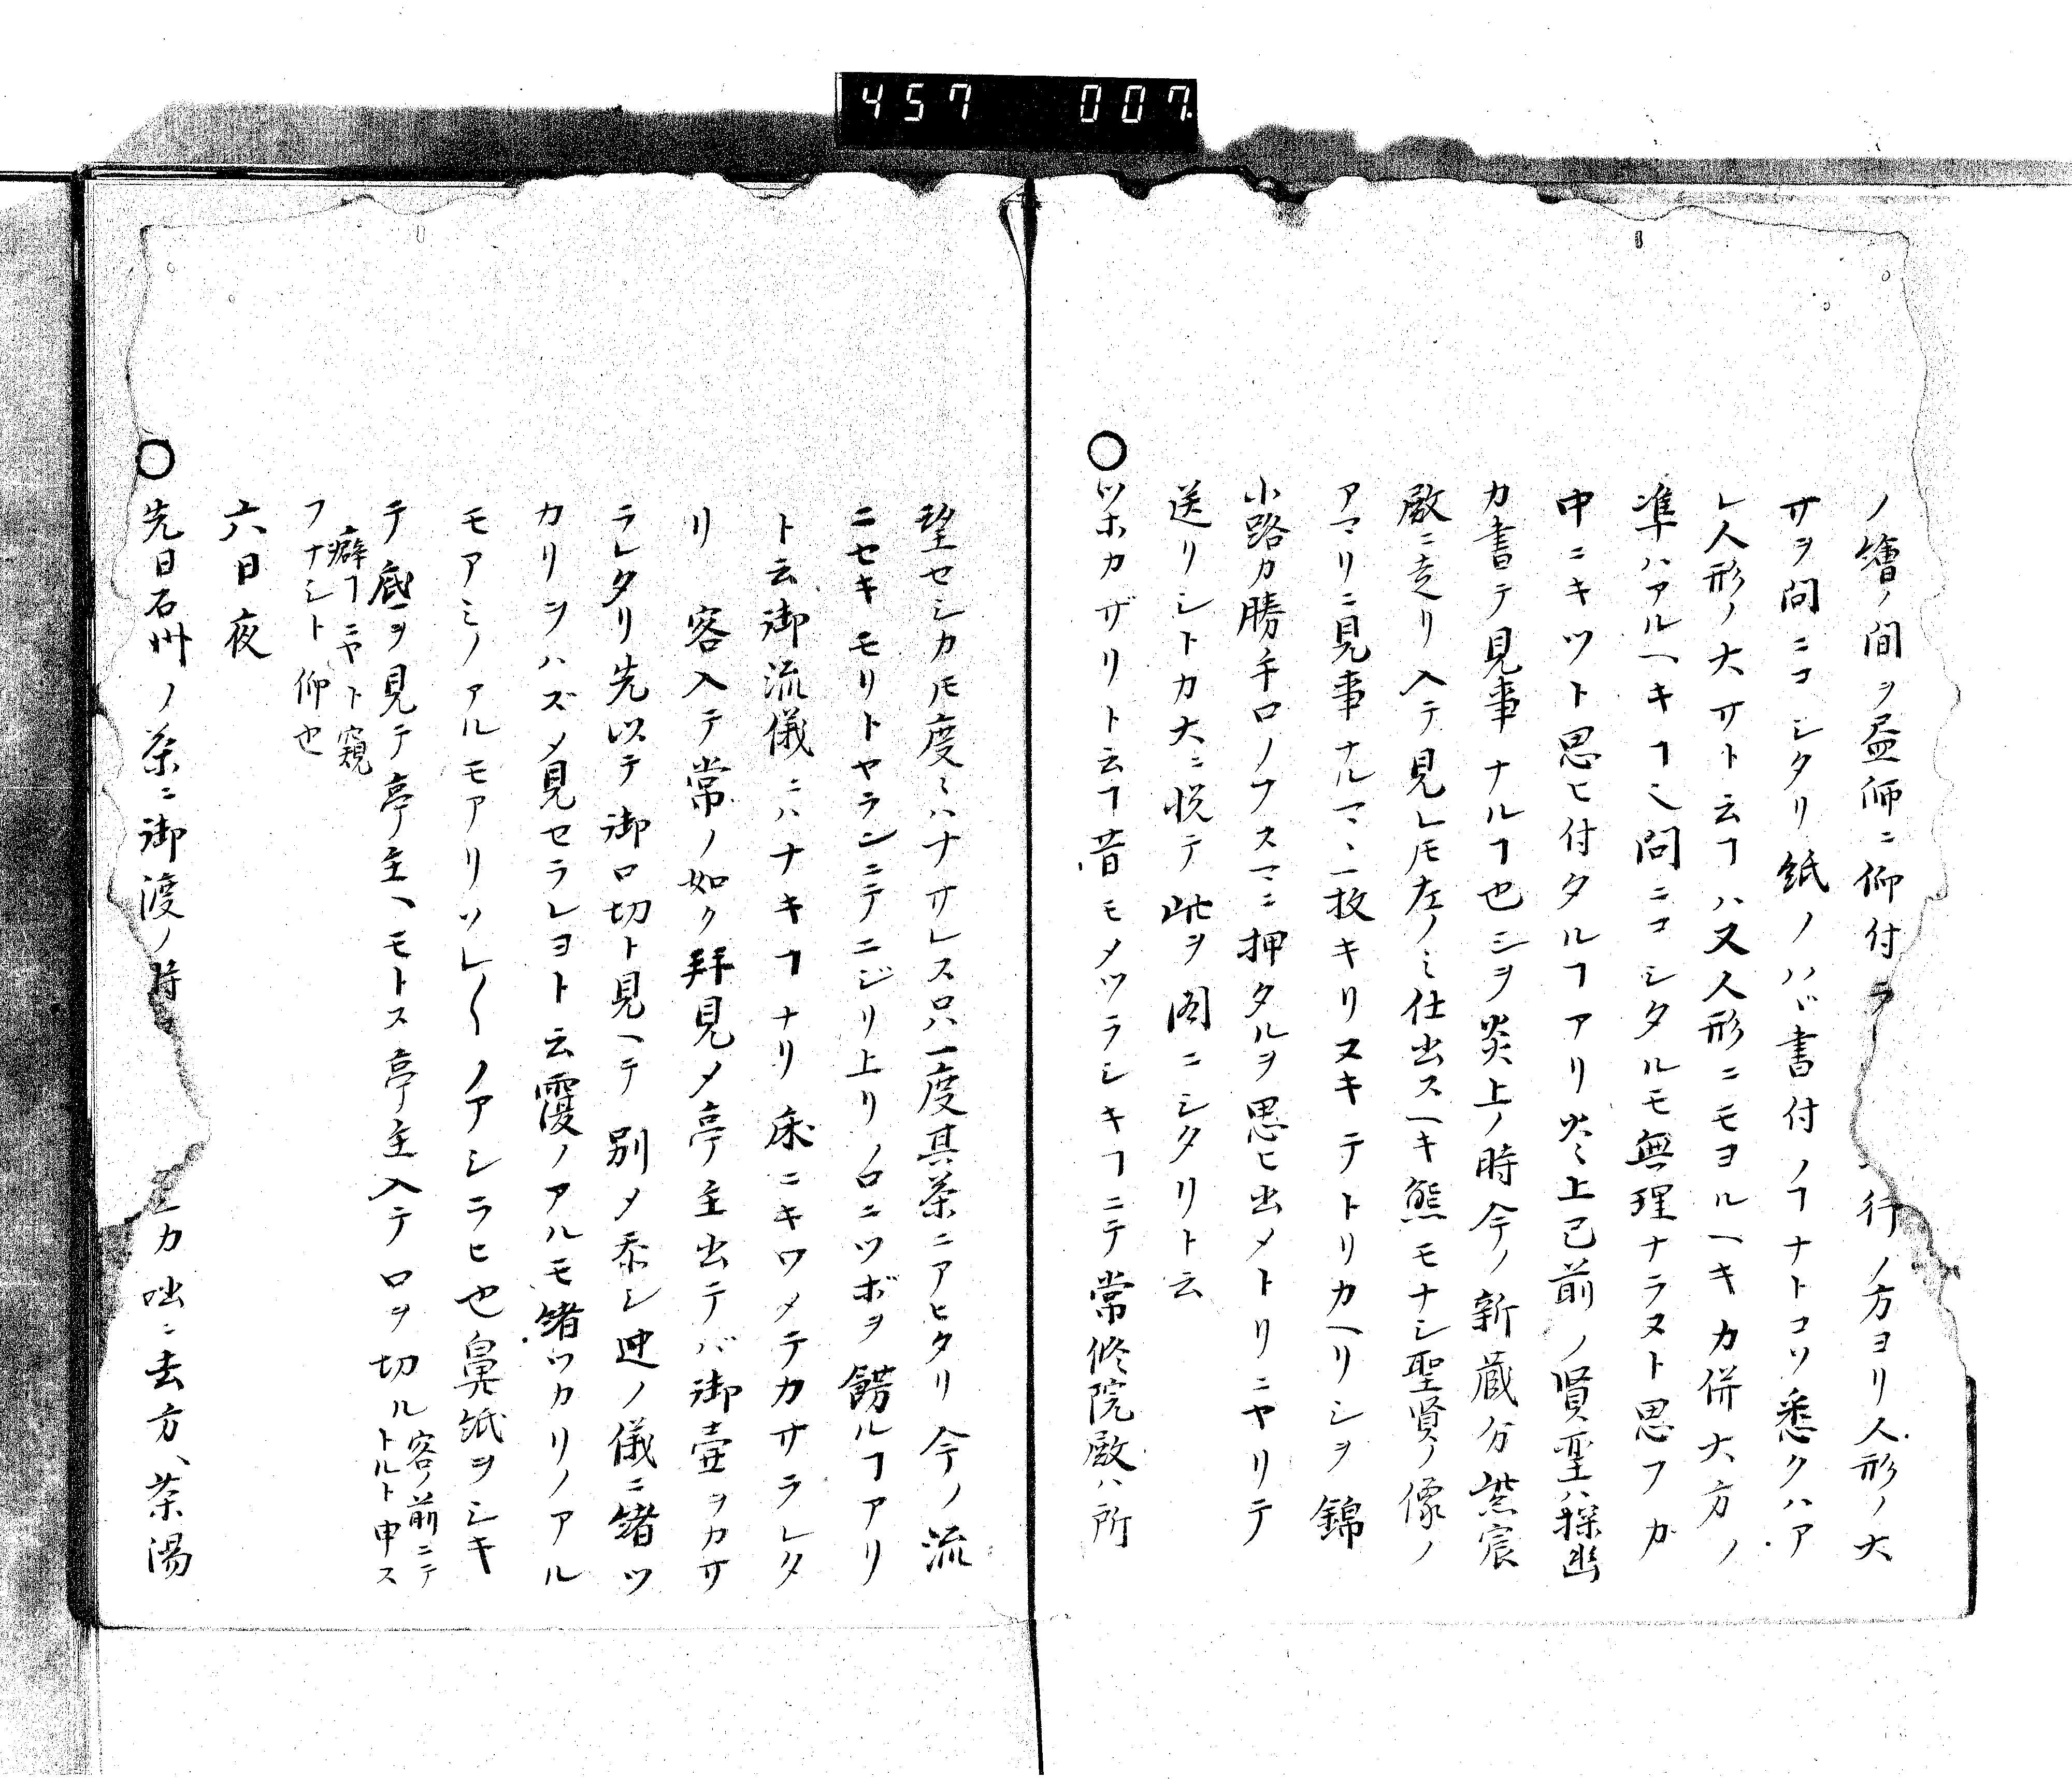 457 007
ノ繪ノ間ヲ畫師ニ仰付ラ 行ノ方ヨリ人形ノ大
サヲ問ニコシタリ紙ノハバ書付ノヿナトコソ悉クハア
レ人形ノ大サト云ヿハ又人形ニモヨルヘキカ併大方ノ
準ハアルヘキヿ也問ニコシタルモ無理ナラヌト思フカ
中ニキツト思ヒ付タルヿアリ炎上已前ノ賢聖ハ探幽
カ書テ見事ナルヿ也シヲ炎上ノ時今ノ新蔵分紫宸
殿ニ走リ入テ見レ𪜈左ノミ仕出スヘキ熊モナシ聖賢ノ像ノ
アマリニ見事ナルマヽ一枚キリヌキテトリカヘリシヲ錦
小路カ勝手口ノナスマニ押タルヲ思ヒ出メトリニヤリテ
送リシトカ大ニ悦テ此ヲ圖ニシタリト云
○ツホカザリト云ヿ昔モメツラシキヿニテ常修院殿ハ所
望セシカ𪜈度〻ハナサレス只一度其茶ニアヒタリ今ノ流
ニセキモリトヤランニテニジリ上リノ口ニツボヲ餝ルヿアリ
ト云御流儀ニハナキヿナリ床ニキワメテカサラレタ
リ 客入テ常ノ如ク拜見メ亭主出テバ御壷ヲカサ
ラレタリ先以テ御口切ト見ヘテ別メ忝シ迚ノ儀ニ緒ツ
カリヲハズメ見セラレヨト云覆ノアルモ緒ツカリノアル
モアミノアルモアリソレ〱ノアシラヒ也鼻紙ヲシキ
テ底ヲ見テ亭主ヘモトス亭主入テ口ヲ切ル客ノ前ニテ
トルト申ス
癖ヿニヤト窺
フナシト仰也
六日夜
○先日石州ノ茶ニ御渡ノ時 カ咄ニ去方ヘ茶湯